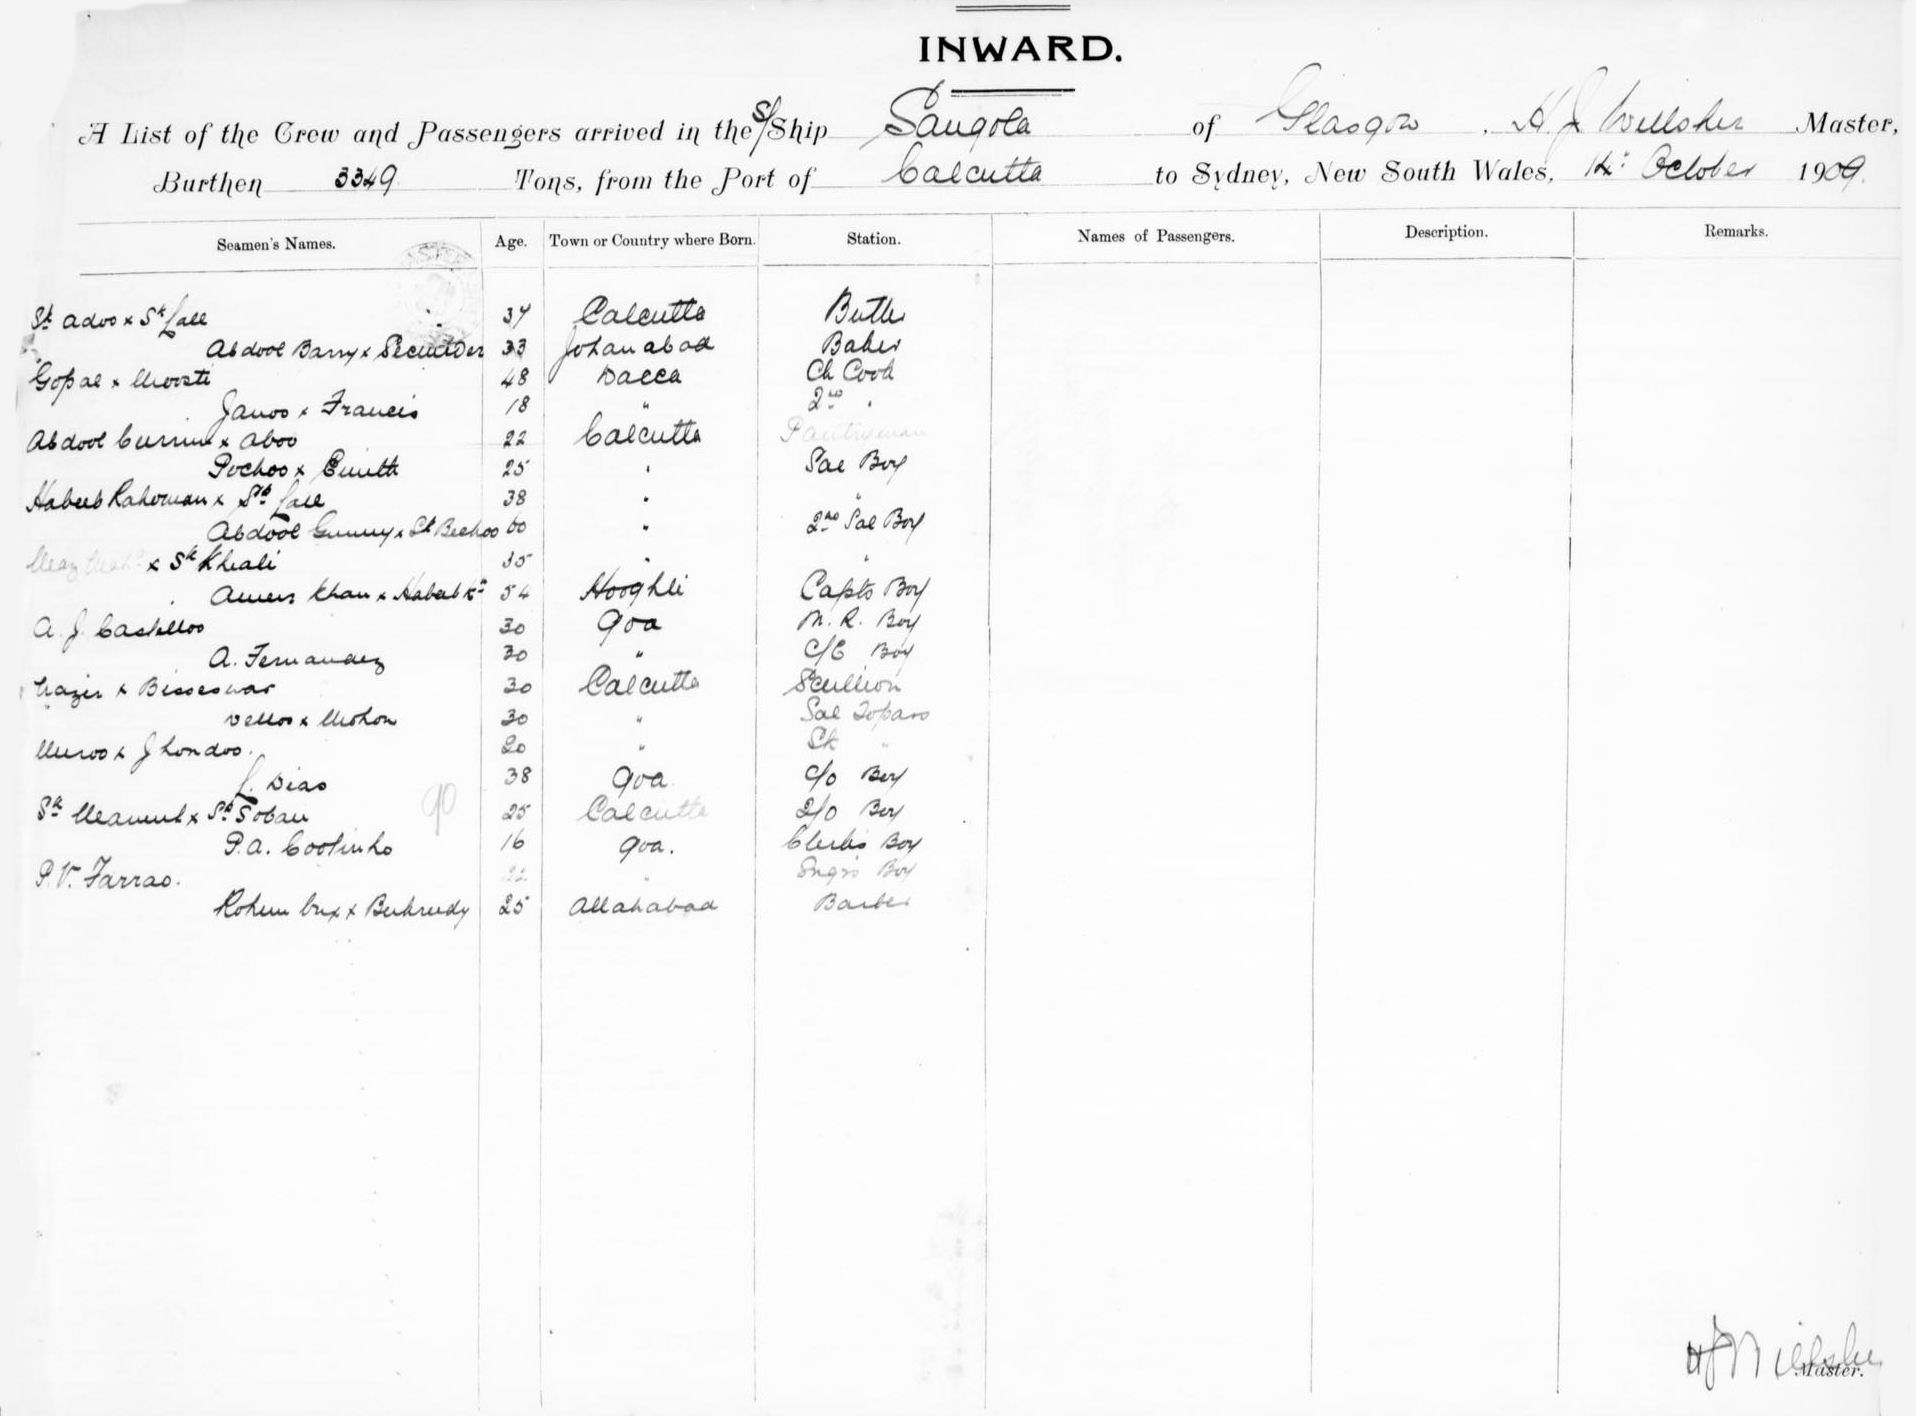 INWARD.
A List of the Crew and Passengers arrived in the S/Ship Sangola of Glasgow, H J Willsher Master,
Burthen 3349 Tons, from the Port of Calcutta to Sydney, New South Wales, 14th October 1909.
Seamen's Names. Age. Town or Country where Born. Station. Names of Passengers. Description. Remarks.
Sk Adoo x Sk Lall 37 Calcutta Butler
Abdool Barry x Secunder 33 Johanabad Baker
Gopal x 48 Dacca Ch Cook
Janoo x Francis 18 " 2nd "
Abdool Currim x Aboo 22 Calcutta Pantryman
Pochoo x 25 " Sal Boy
Habeeb Rahoman x Sk Lall 38 " "
Abdool Gunny x Sk Bechoo 60 " 2nd Sal Boy
x Sk Khali 35 " "
Ameer Khan x Habeeb Kn 54 Hooghli Capts Boy
A. J. Castelloo 30 Goa M. R. Boy
A. Fernandez 30 " C/E Boy
x Bisseswar 30 Calcutta Scullion
Velloo x Mohon 30 " Sal Topass
x Jhondoo. 20 " Sk "
L. Dias 38 Goa. C/O Boy
Sk x Sk Soban 25 Calcutta 2/O Boy
90
P. A. Cootinho 16 Goa. Clerks Boy
P. V. Farrao. 22 " Engrs Boy
Rohim Bux x 25 Allahabad Barber
H J Willsher
Master.